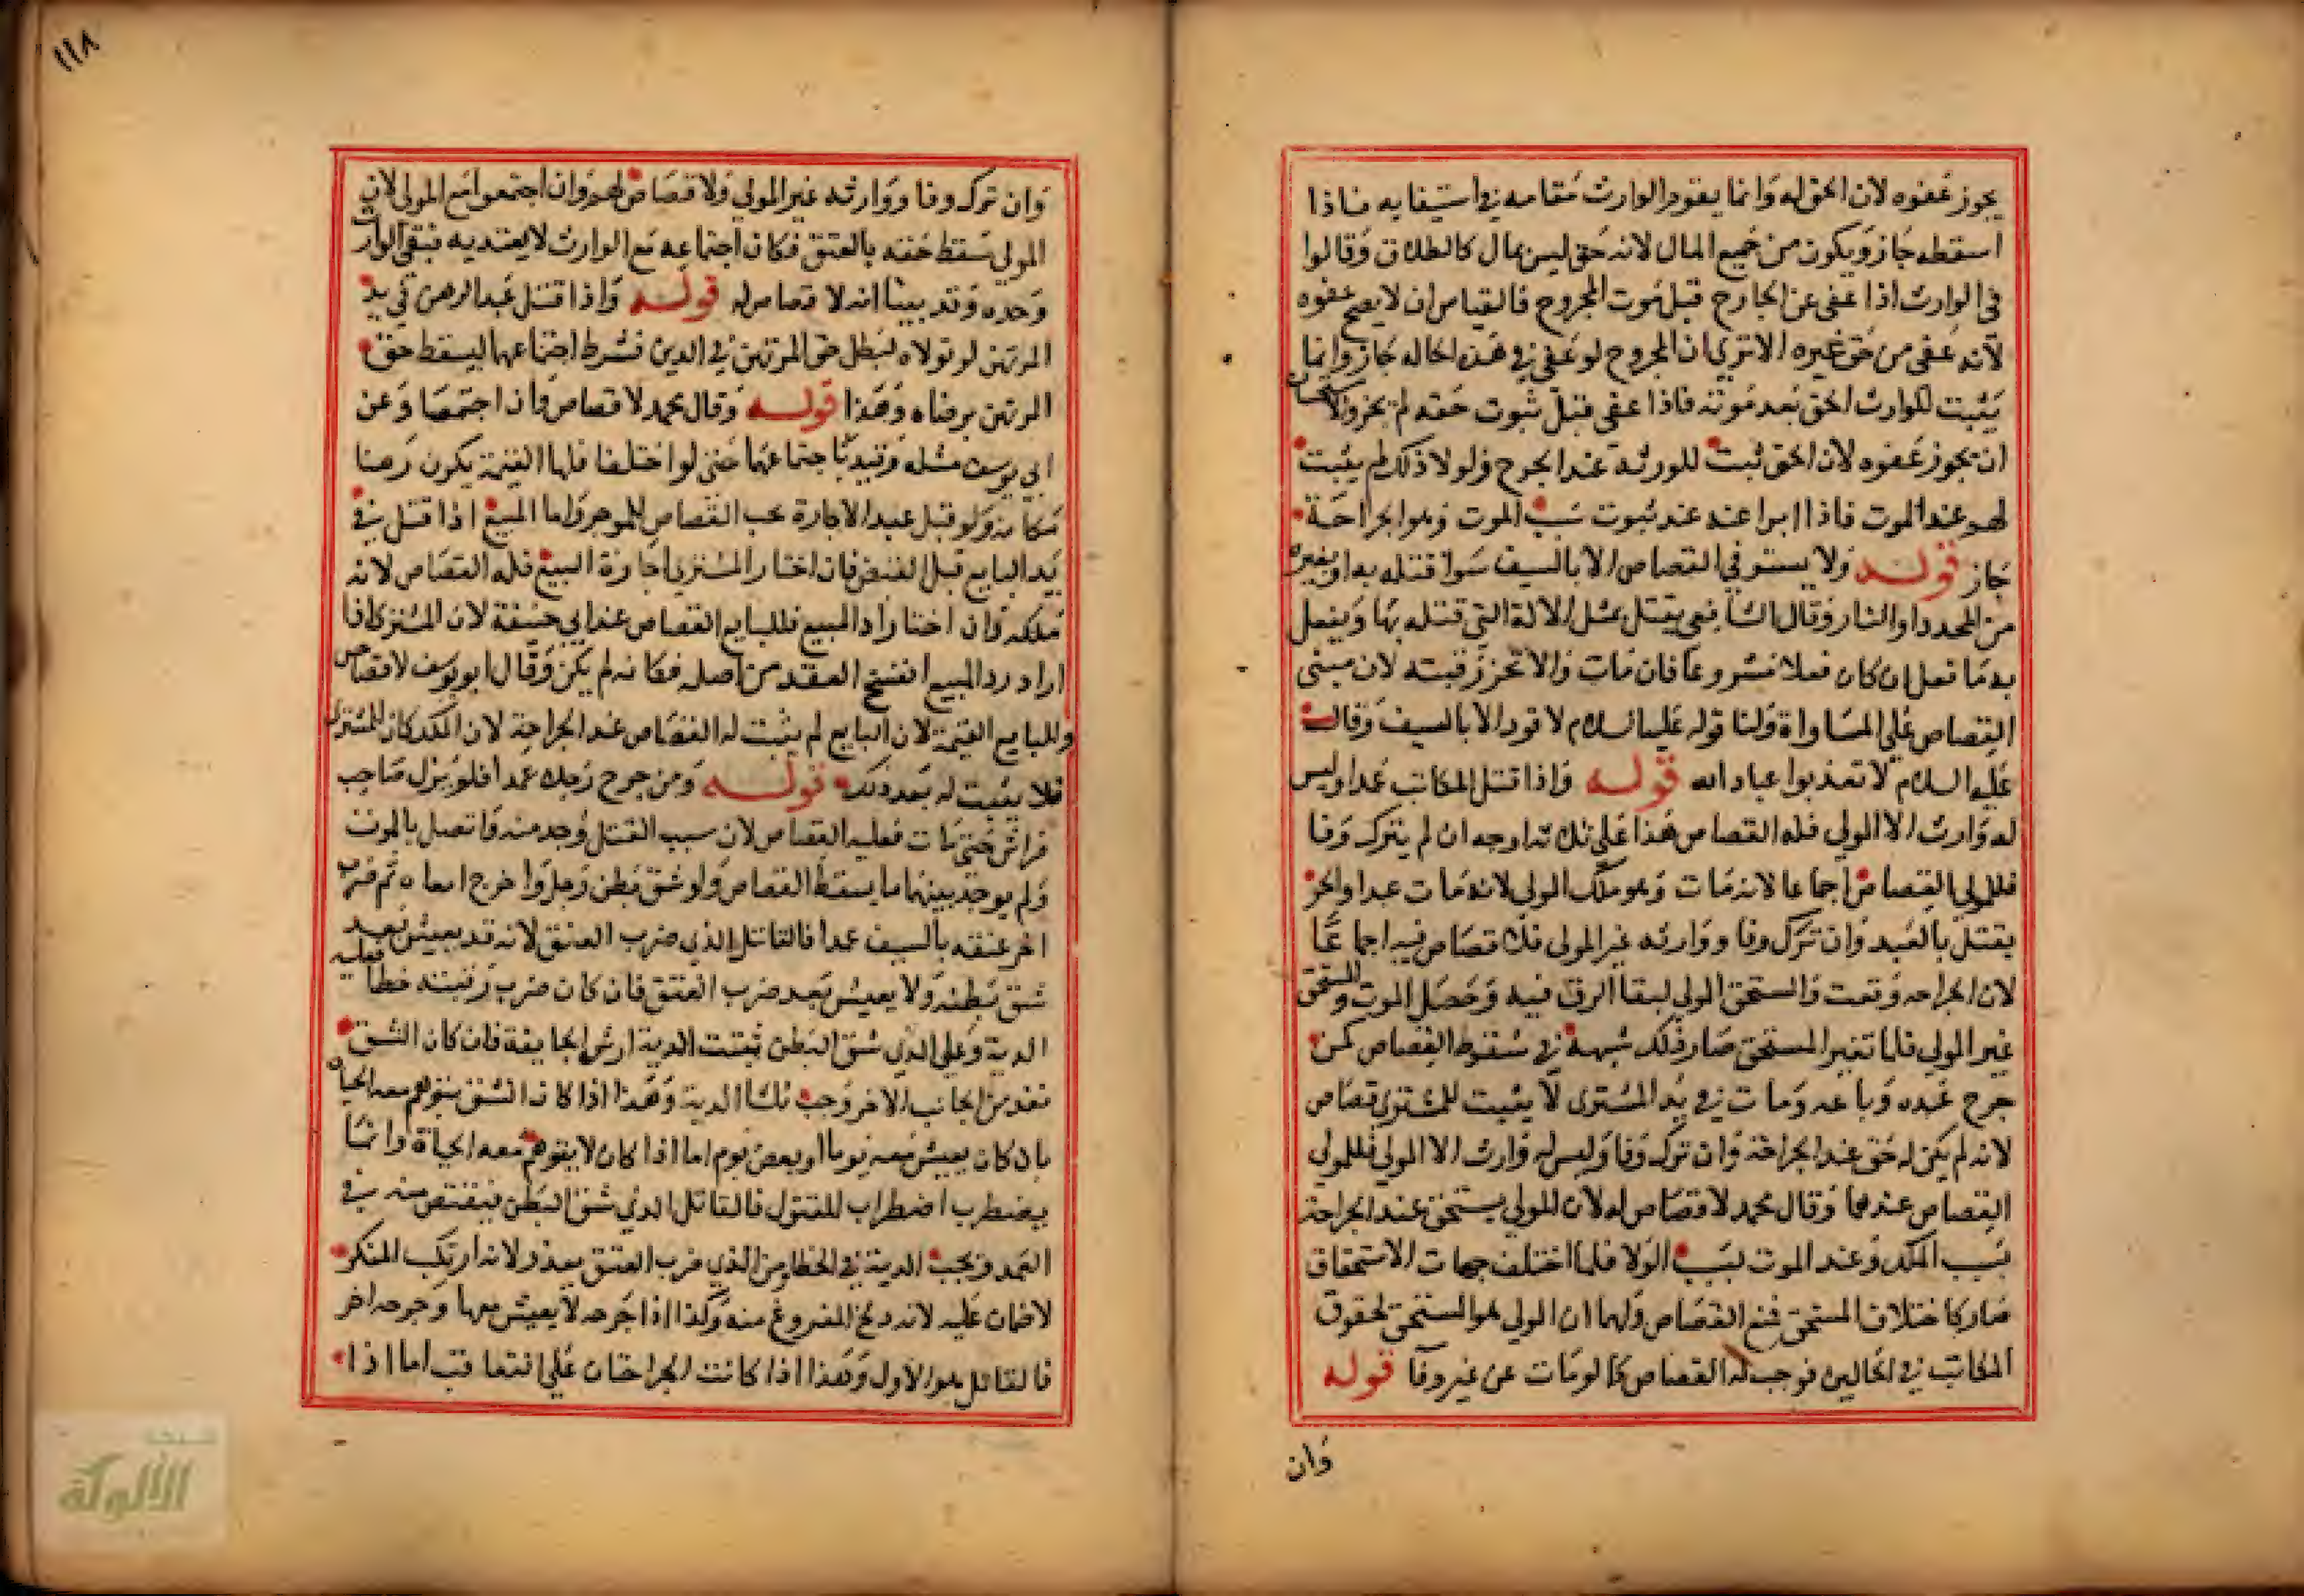 يجوز عفوه لان الحق له وانما يقوم الوارث مقامه في استيفايه فاذا
اسقطه جاز ويكون من جميع المال لانه حق ليس بمال كالطلاق وقالوا
في الوارث اذا عفى عن الجارح قبل موت المجروح فالقياس ان لا يصح عفوه
لانه عفى من حق غيره الا تري ان المجروح لو عفى في هذه الحاله جاز وانما
يثبت للوارث الحق بعد موته فاذا عفى قبل ثبوت حقه لم يجز
ان يجوز عفوه لان الحق ثبت للورثه عند الجرح ولولا ذلك لم يثبت
لهم عند الموت فاذا ابرا عند عند ثبوت سبب الموت وهو الجراحة
جاز قوله ولا يستوفي القصاص الا بالسيف سوا قتله به او بغيره
من المحدد او النار وقال الشافعي يقتل بمثل الالة التي قتله بها ويفعل
به ما فعل ان كان فعلا مشروعا فان مات والا تحز رقبته لان مبنى
القصاص علي المساواة ولنا قوله عليه السلام لا قود الا بالسيف وقال
عليه السلام لا تعذبوا عباد الله قوله واذا قتل المكاتب عمدا وليس
له وارث الا المولي فله القصاص هذا على ثلاثة اوجه ان لم يترك وفا
فللمولى القصاص اجماعا لانه مات وهو ملك المولى لانه مات عبدا والحر
يقتل بالعبد وان ترك وفا ووارثه غير المولى فلا قصاص فيه اجماعا
لان الجراحه وقعت والمستحق المولي لبقا الرق فيه وحصل الموت والمستحق
غير المولي فلما تغير المستحق صار ذلك شبهة في سقوط القصاص كمن
جرح عبده وباعه ومات في يد المشترى لا يثبت للمشتري قصاص
لانه لم يكن له حق عند الجراحة وان ترك وفا وليس له وارث الا المولي فللمولي
القصاص عندهما وقال محمد لا قصاص له لان المولي يستحق عند الجراحة
بسبب الملك وعند الموت بسبب الولا فلما اختلف جهات الاستحقاق
صار كاختلاف المستحق فمنع القصاص ولهما ان المولي هو المستحق لحقوق
المكاتب في الحالين فوجب له القصاص كما لو مات عن غير وفا قوله
وان
١١٨
وان ترك وفا ووارثه غير المولي ولا قصاص لهم وان اجتمعوا مع المولى لان
المولي سقط حقه بالعتق فكان اجتماعه مع الوارث لا يعتد به فبقى الوارث
وحده وقد بينا انه لا قصاص له قوله واذا قتل عبد الرهن في يد
المرتهن لو تولاه لبطل حق المرتهن في الدين فشرط اجتماعهما ليسقط حق
المرتهن برضاه وهذا قوله وقال محمد لا قصاص وان اجتمعا وعن
ابي يوسف مثله وقيد باجتماعهما حتى لو اختلفا فلهما القيمة يكون رهنا
مكانه ولو قتل عبد الاجارة يجب القصاص للموجر واما المبيع اذا قتل في
يد البايع قبل القبض فان اختار المشتري اجازة البيع فله القصاص لانه
ملكه وان اختار رد المبيع فللبايع القصاص عند ابي حنيفة لان المشتري اذا
اراد رد المبيع انفسخ العقد من اصله فكانه لم يكن وقال ابو يوسف لا قصاص
وللبايع القيمة لان البايع لم يثبت له القصاص عند الجراحة لان الملك كان للمشتري
فلا يثبت له بعد ذلك قوله ومن جرح رجلا عمدا فلم يزل صاحب
فراش حتى مات فعليه القصاص لان سبب القتل وجد منه واتصل بالموت
ولم يوجد بينهما ما يسقط القصاص ولو شق بطن رجل واخرج امعاه ثم ضرب
اخر عنقه بالسيف عمدا فالقاتل الذي ضرب العنق لانه قد يعيش بعد
شق بطنه ولا يعيش بعد ضرب العنق فان كان ضرب رقبته خطا فعليه
الدية وعلى الذي شق البطن ثلث الدية ارش الجايفة فان كان الشق
نفذ من الجانب الاخر وجب ثلثا الدية وهذا اذا كان الشق يتوهم معه الحياة
بان كان يعيش معه يوما او بعض يوم اما اذا كان لا يتوهم معه الحياة وانما
يضطرب اضطراب المقتول فالقاتل الذي شق البطن فيقتص منه في
العمد وتجب الدية في الخطا ومن الذي ضرب العنق يعزر ولانه ارتكب المنكر
لا ضمان عليه لانه دبح المفروغ منه وكذا اذا جرحه لا يعيش معها وجرحه اخر
فالقاتل هو الاول وهذا اذا كانت الجراحتان علي التعاقب اما اذا
الألوكة